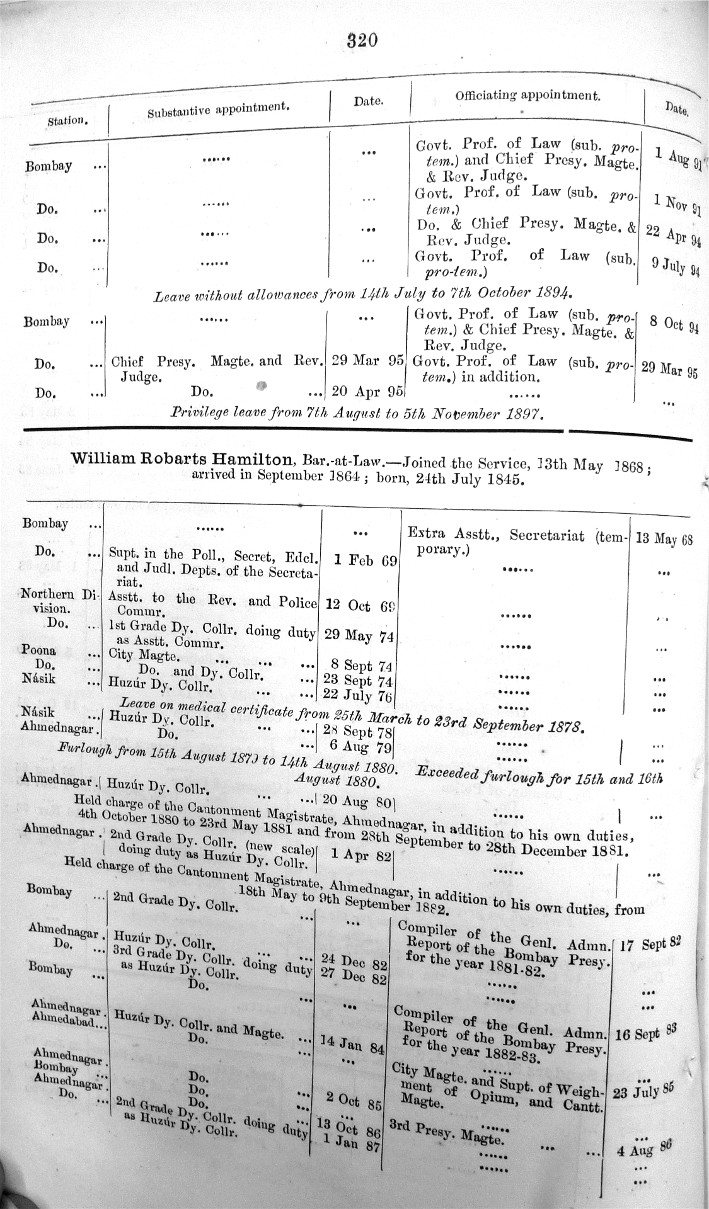 320
Station. Substantive appointment. Date. Officiating appointment. Date.
Bombay ... ...... ... Govt. Prof. of Law (sub. pro-
tem.) and Chief Presy. Magte. 1 Aug 91
& Rev. Judge.
Do. ... ...... ... Govt. Prof. of Law (sub. pro- 1 Nov 91
tem.)
Do. ... ...... ... Do. & Chief Presy. Magte. & 22 Apr 94
Rev. Judge.
Do. ... ...... ... Govt. Prof. of Law (sub. 9 July 94
pro-tem.)
Leave without allowances from 14th July to 7th October 1894.
Bombay ... ...... ... Govt. Prof. of Law (sub. pro- 8 Oct 94
tem.) & Chief Presy. Magte. &
Rev. Judge.
Do. ... Chief Presy. Magte. and Rev. 29 Mar 95 Govt. Prof. of Law (sub. pro- 29 Mar 95
Judge. tem.) in addition.
Do. ... Do. ... 20 Apr 95 ...... ...
Privilege leave from 7th August to 5th November 1897.
William Robarts Hamilton, Bar.-at-Law.—Joined the Service, 13th May 1868;
arrived in September 1864; born, 24th July 1845.
Bombay ... ...... ... Extra Asstt., Secretariat (tem- 13 May 68
porary.)
Do. ... Supt. in the Poll., Secret, Edcl. 1 Feb 69 ...... ...
and Judl. Depts. of the Secreta-
riat.
Northern Di- Asstt. to the Rev. and Police 12 Oct 69 ...... ...
vision. Commr.
Do. ... 1st Grade Dy. Collr. doing duty 29 May 74 ...... ...
as Asstt. Commr.
Poona ... City Magte. ... ... ... 8 Sept 74 ...... ...
Do. ... Do. and Dy. Collr. ... 23 Sept 74 ...... ...
Násik ... Huzúr Dy. Collr. ... ... 22 July 76 ...... ...
Leave on medical certificate from 25th March to 23rd September 1878.
Násik ... Huzúr Dy. Collr. ... ... 28 Sept 78 ...... ...
Ahmednagar. Do. ... 6 Aug 79 ...... ...
Furlough from 15th August 1879 to 14th August 1880. Exceeded furlough for 15th and 16th
August 1880.
Ahmednagar. Huzúr Dy. Collr. ... ... 20 Aug 80 ...... ...
Held charge of the Cantonment Magistrate, Ahmednagar, in addition to his own duties,
4th October 1880 to 23rd May 1881 and from 28th September to 28th December 1881.
Ahmednagar. 2nd Grade Dy. Collr. (new scale) 1 Apr 82 ...... ...
doing duty as Huzúr Dy. Collr.
Held charge of the Cantonment Magistrate, Ahmednagar, in addition to his own duties, from
18th May to 9th September 1882.
Bombay ... 2nd Grade Dy. Collr. ... ... Compiler of the Genl. Admn. 17 Sept 82
Report of the Bombay Presy.
for the year 1881-82.
Ahmednagar. Huzúr Dy. Collr. ... ... 24 Dec 82 ...... ...
Do. ... 3rd Grade Dy. Collr. doing duty 27 Dec 82 ...... ...
as Huzúr Dy. Collr.
Bombay ... Do. ... Compiler of the Genl. Admn. 16 Sept 83
Report of the Bombay Presy.
for the year 1882-83.
Ahmednagar. Huzúr Dy. Collr. and Magte. ... 14 Jan 84 ...... ...
Ahmedabad... Do. ... ... City Magte. and Supt. of Weigh- 23 July 85
ment of Opium, and Cantt.
Magte.
Ahmednagar. Do. ... 2 Oct 85 ...... ...
Bombay ... Do. ... ... 3rd Presy. Magte. ... ... 4 Aug 86
Ahmednagar. Do. ... 13 Oct 86 ...... ...
Do. ... 2nd Grade Dy. Collr. doing duty 1 Jan 87 ...... ...
as Huzúr Dy. Collr.